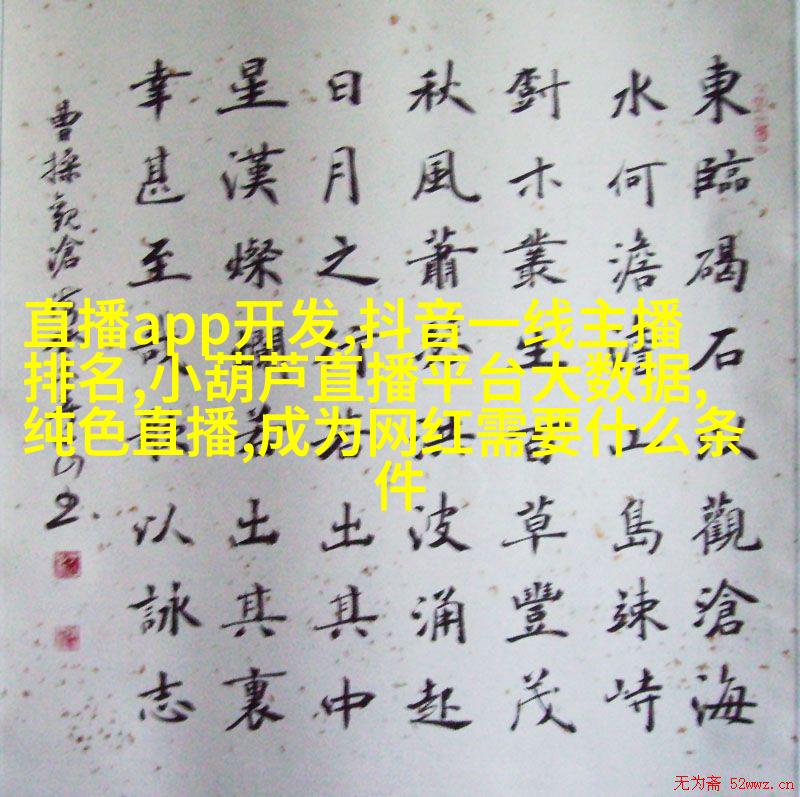 直播app开发,抖音一线主播
排名,小葫芦直播平台大数据,
纯色直播,成为网红需要什么条
件
東臨碣石以觀滄海
水何澹澹山島竦峙
木叢生百草豐茂
秋風蕭瑟洪波涌起
日月之行若出其中
星漢燦爛若出其裏
幸甚至哉歌以詠志
曹操觀滄
无为斋 52wwz.cn